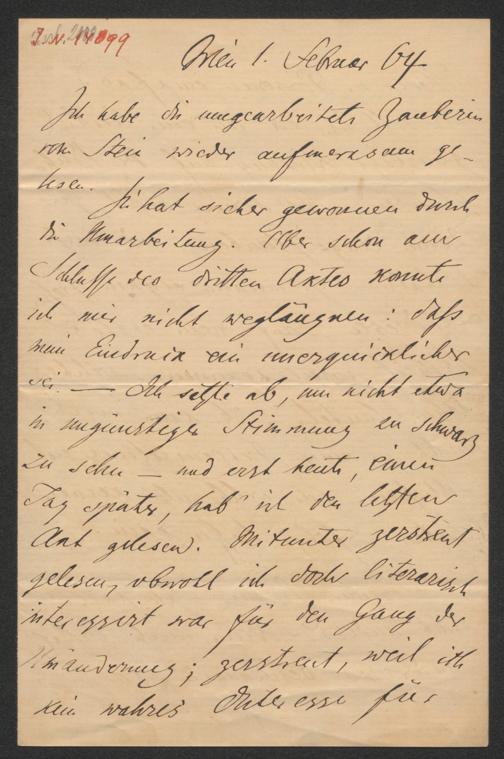 J. N. 14099
Wien 1. Februar 04
Ich habe die umgearbeitete Zauberin
vom Stein wieder aufmerksam ge-
lesen.
Sie hat sicher gewonnen durch
die Umarbeitung. Aber schon am
Schlusse des dritten Aktes konnte
ich mir nicht wegläugnen: daß
mein Eindruck ein unerquicklicher
sei. — Ich setzte ab, um nicht etwa
in ungünstiger Stimmung zu schwarz
zu sehn — und erst heute, einen
Tag später, hab' ich den letzten
Akt gelesen. Mitunter zerstreut
gelesen, obwoll ich doch literarisch
interessirt war für den Gang der
Umänderung; zerstreut, weil ich
kein wahres Interesse für